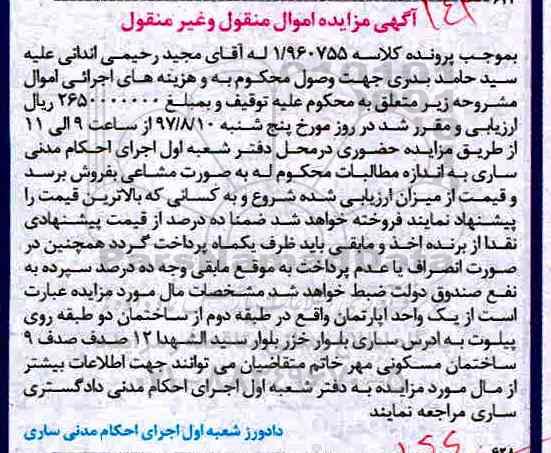 آگهی مزایده اموال منقول وغیر منقول
بموجب پرونده کلاسه ۱/۹۶۰۷۵۵ له آقای مجید رحیمی اندانی علیه
سید حامد بدری جهت وصول محکوم به و هزینه های اجرائی اموال
مشروحه زیر متعلق به محکوم علیه توقیف و بمبلغ ۲۶۵۰۰۰۰۰۰۰ ریال
ارزیابی و مقرر شد در روز مورخ پنج شنبه ۹۷/۸/۱۰ از ساعت ۹ الی ۱۱
از طریق مزایده حضوری درمحل دفتر شعبه اول اجرای احکام مدنی
ساری به اندازه مطالبات محکوم له به صورت مشاعی بفروش برسد
و قیمت از میزان ارزیابی شده شروع و به کسانی که بالاترین قیمت را
پیشنهاد نمایند فروخته خواهد شد ضمنا ده درصد از قیمت پیشنهادی
نقدا از برنده اخذ و مابقی باید ظرف یکماه پرداخت گردد همچنین در
صورت انصراف یا عدم پرداخت به موقع مابقی وجه ده درصد سپرده به
نفع صندوق دولت ضبط خواهد شد مشخصات مال مورد مزایده عبارت
است از یک واحد اپارتمان واقع در طبقه دوم از ساختمان دو طبقه روی
پیلوت به ادرس ساری بلوار خزر بلوار سید الشهدا ۱۲ صدف صدف ۹
ساختمان مسکونی مهر خاتم متقاضیان می توانند جهت اطلاعات بیشتر
از مال مورد مزایده به دفتر شعبه اول اجرای احکام مدنی دادگستری
ساری مراجعه نمایند
دادورز شعبه اول اجرای احکام مدنی ساری